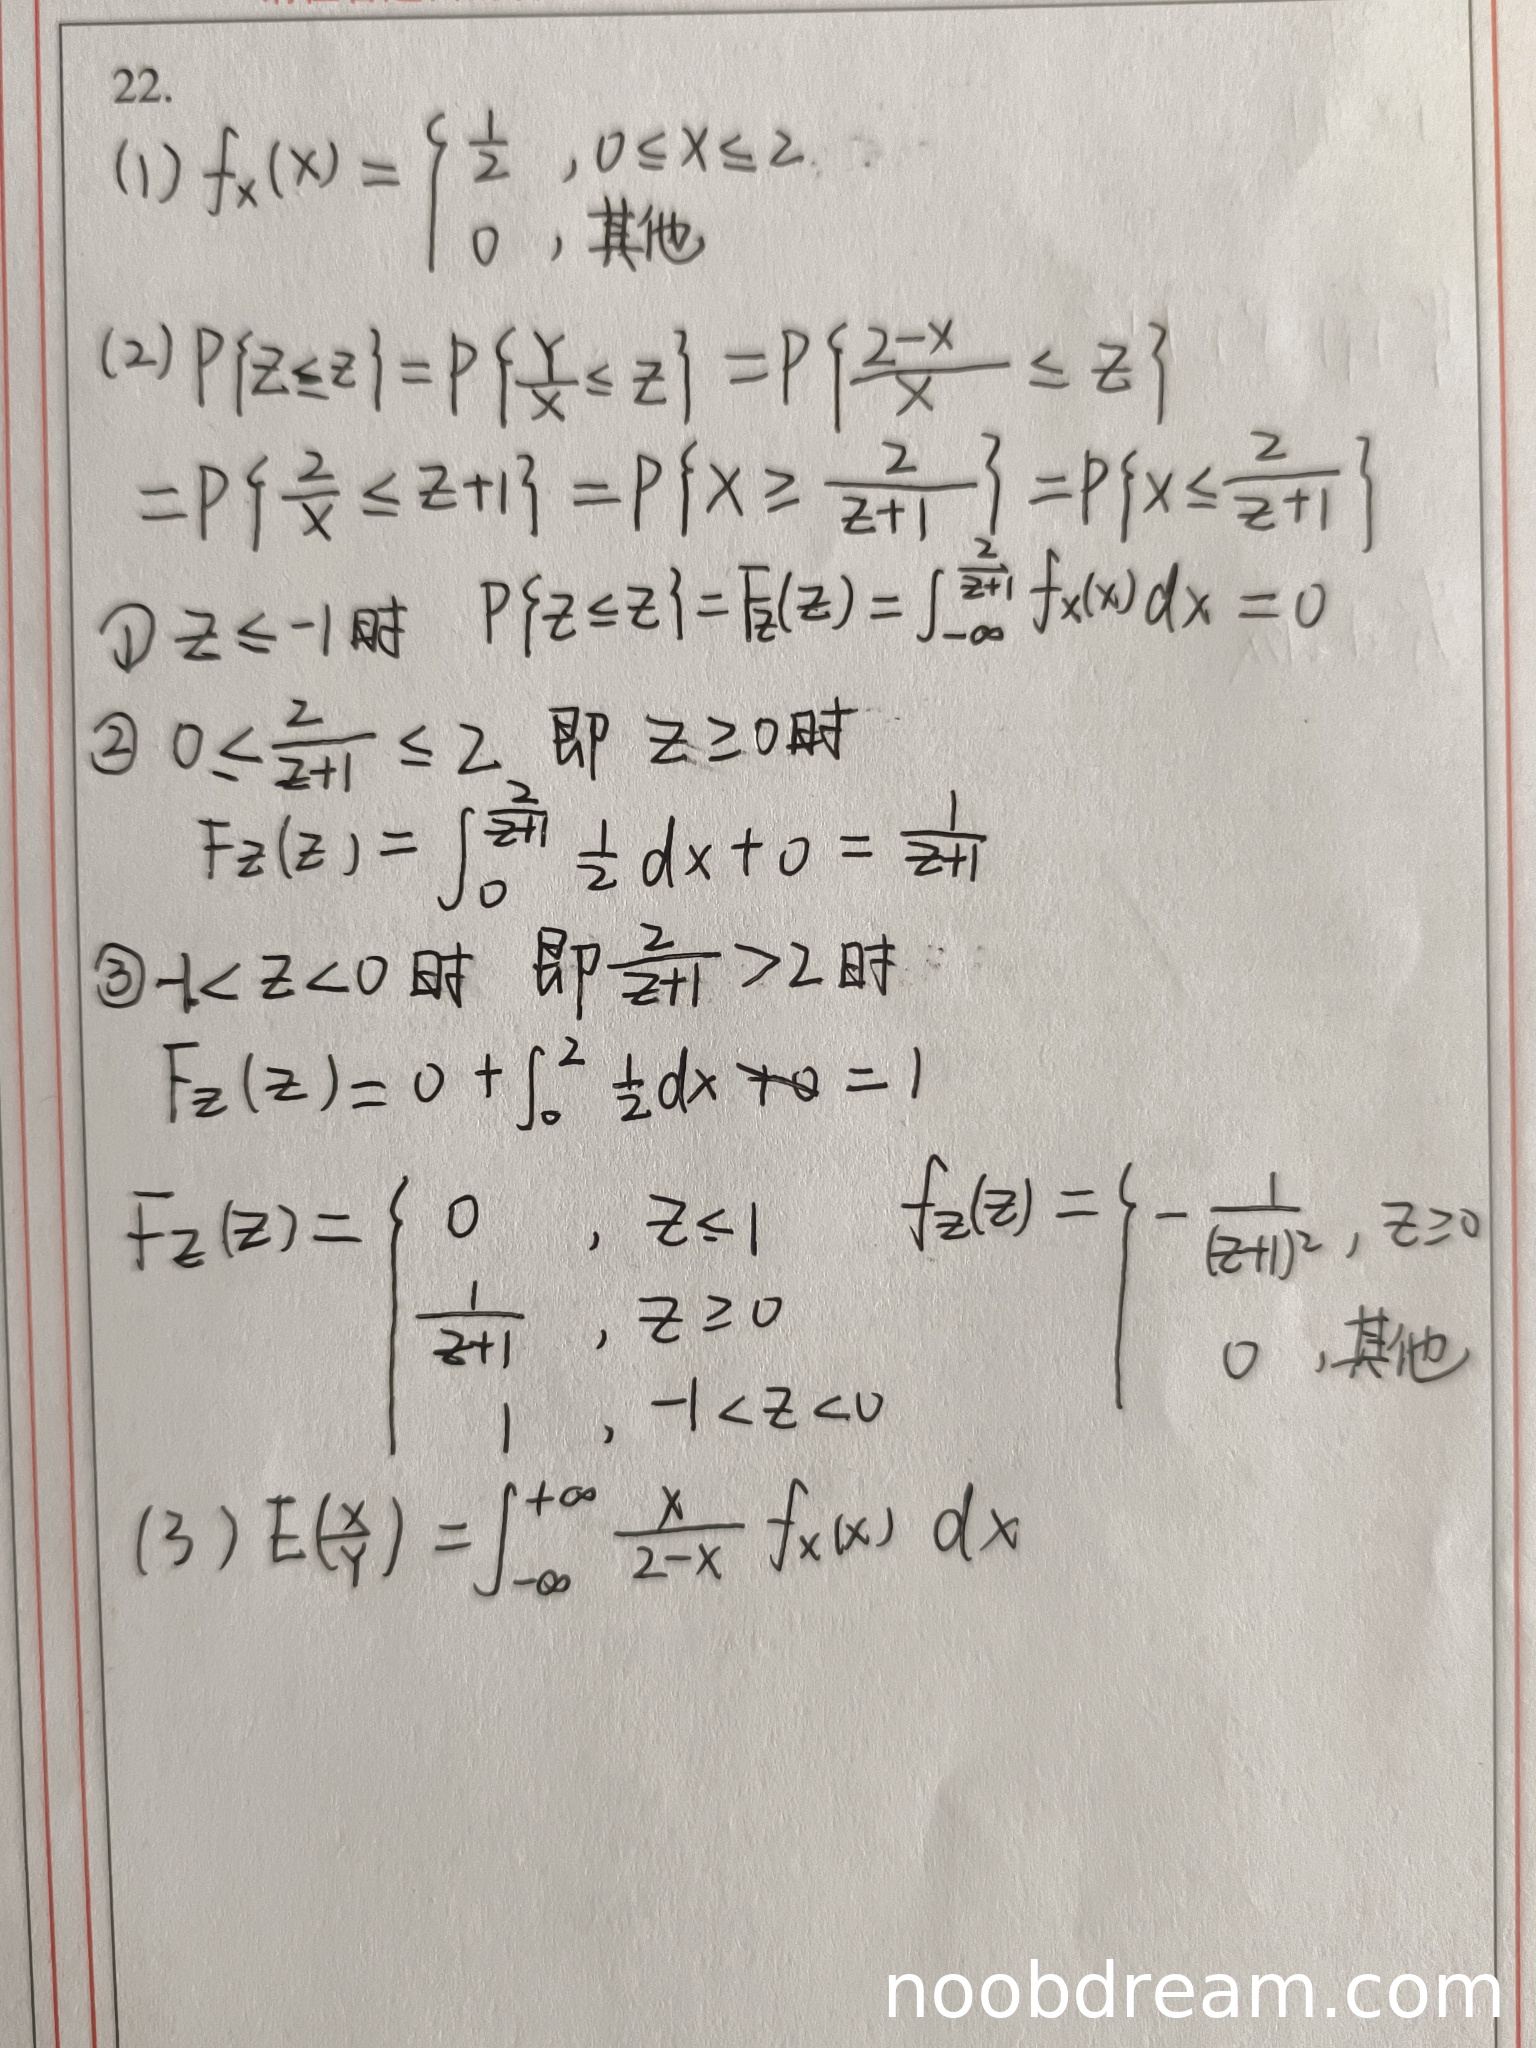 22.
(1) f_X(x) = { 1/2 , 0≤x≤2
0 , 其他
(2) P{Z≤z} = P{Y/X ≤ z} = P{(2-X)/X ≤ z}
= P{2/X ≤ z+1} = P{X ≥ 2/(z+1)} = P{X ≤ 2/(z+1)}
① z≤-1时 P{Z≤z} = F_Z(z) = ∫_{-∞}^{2/(z+1)} f_X(x) dx = 0
② 0≤ 2/(z+1) ≤ 2 即 z≥0时
F_Z(z) = ∫_0^{2/(z+1)} 1/2 dx + 0 = 1/(z+1)
③ -1<z<0时 即 2/(z+1) >2时
F_Z(z) = 0 + ∫_0^2 1/2 dx +0 = 1
F_Z(z) = { 0 , z≤1 f_Z(z) = { -1/(z+1)² , z≥0
1/(z+1) , z≥0
0 , 其他
1 , -1<z<0
(3) E(X/Y) = ∫_{-∞}^{+∞} x/(2-x) f_X(x) dx
noobdream.com